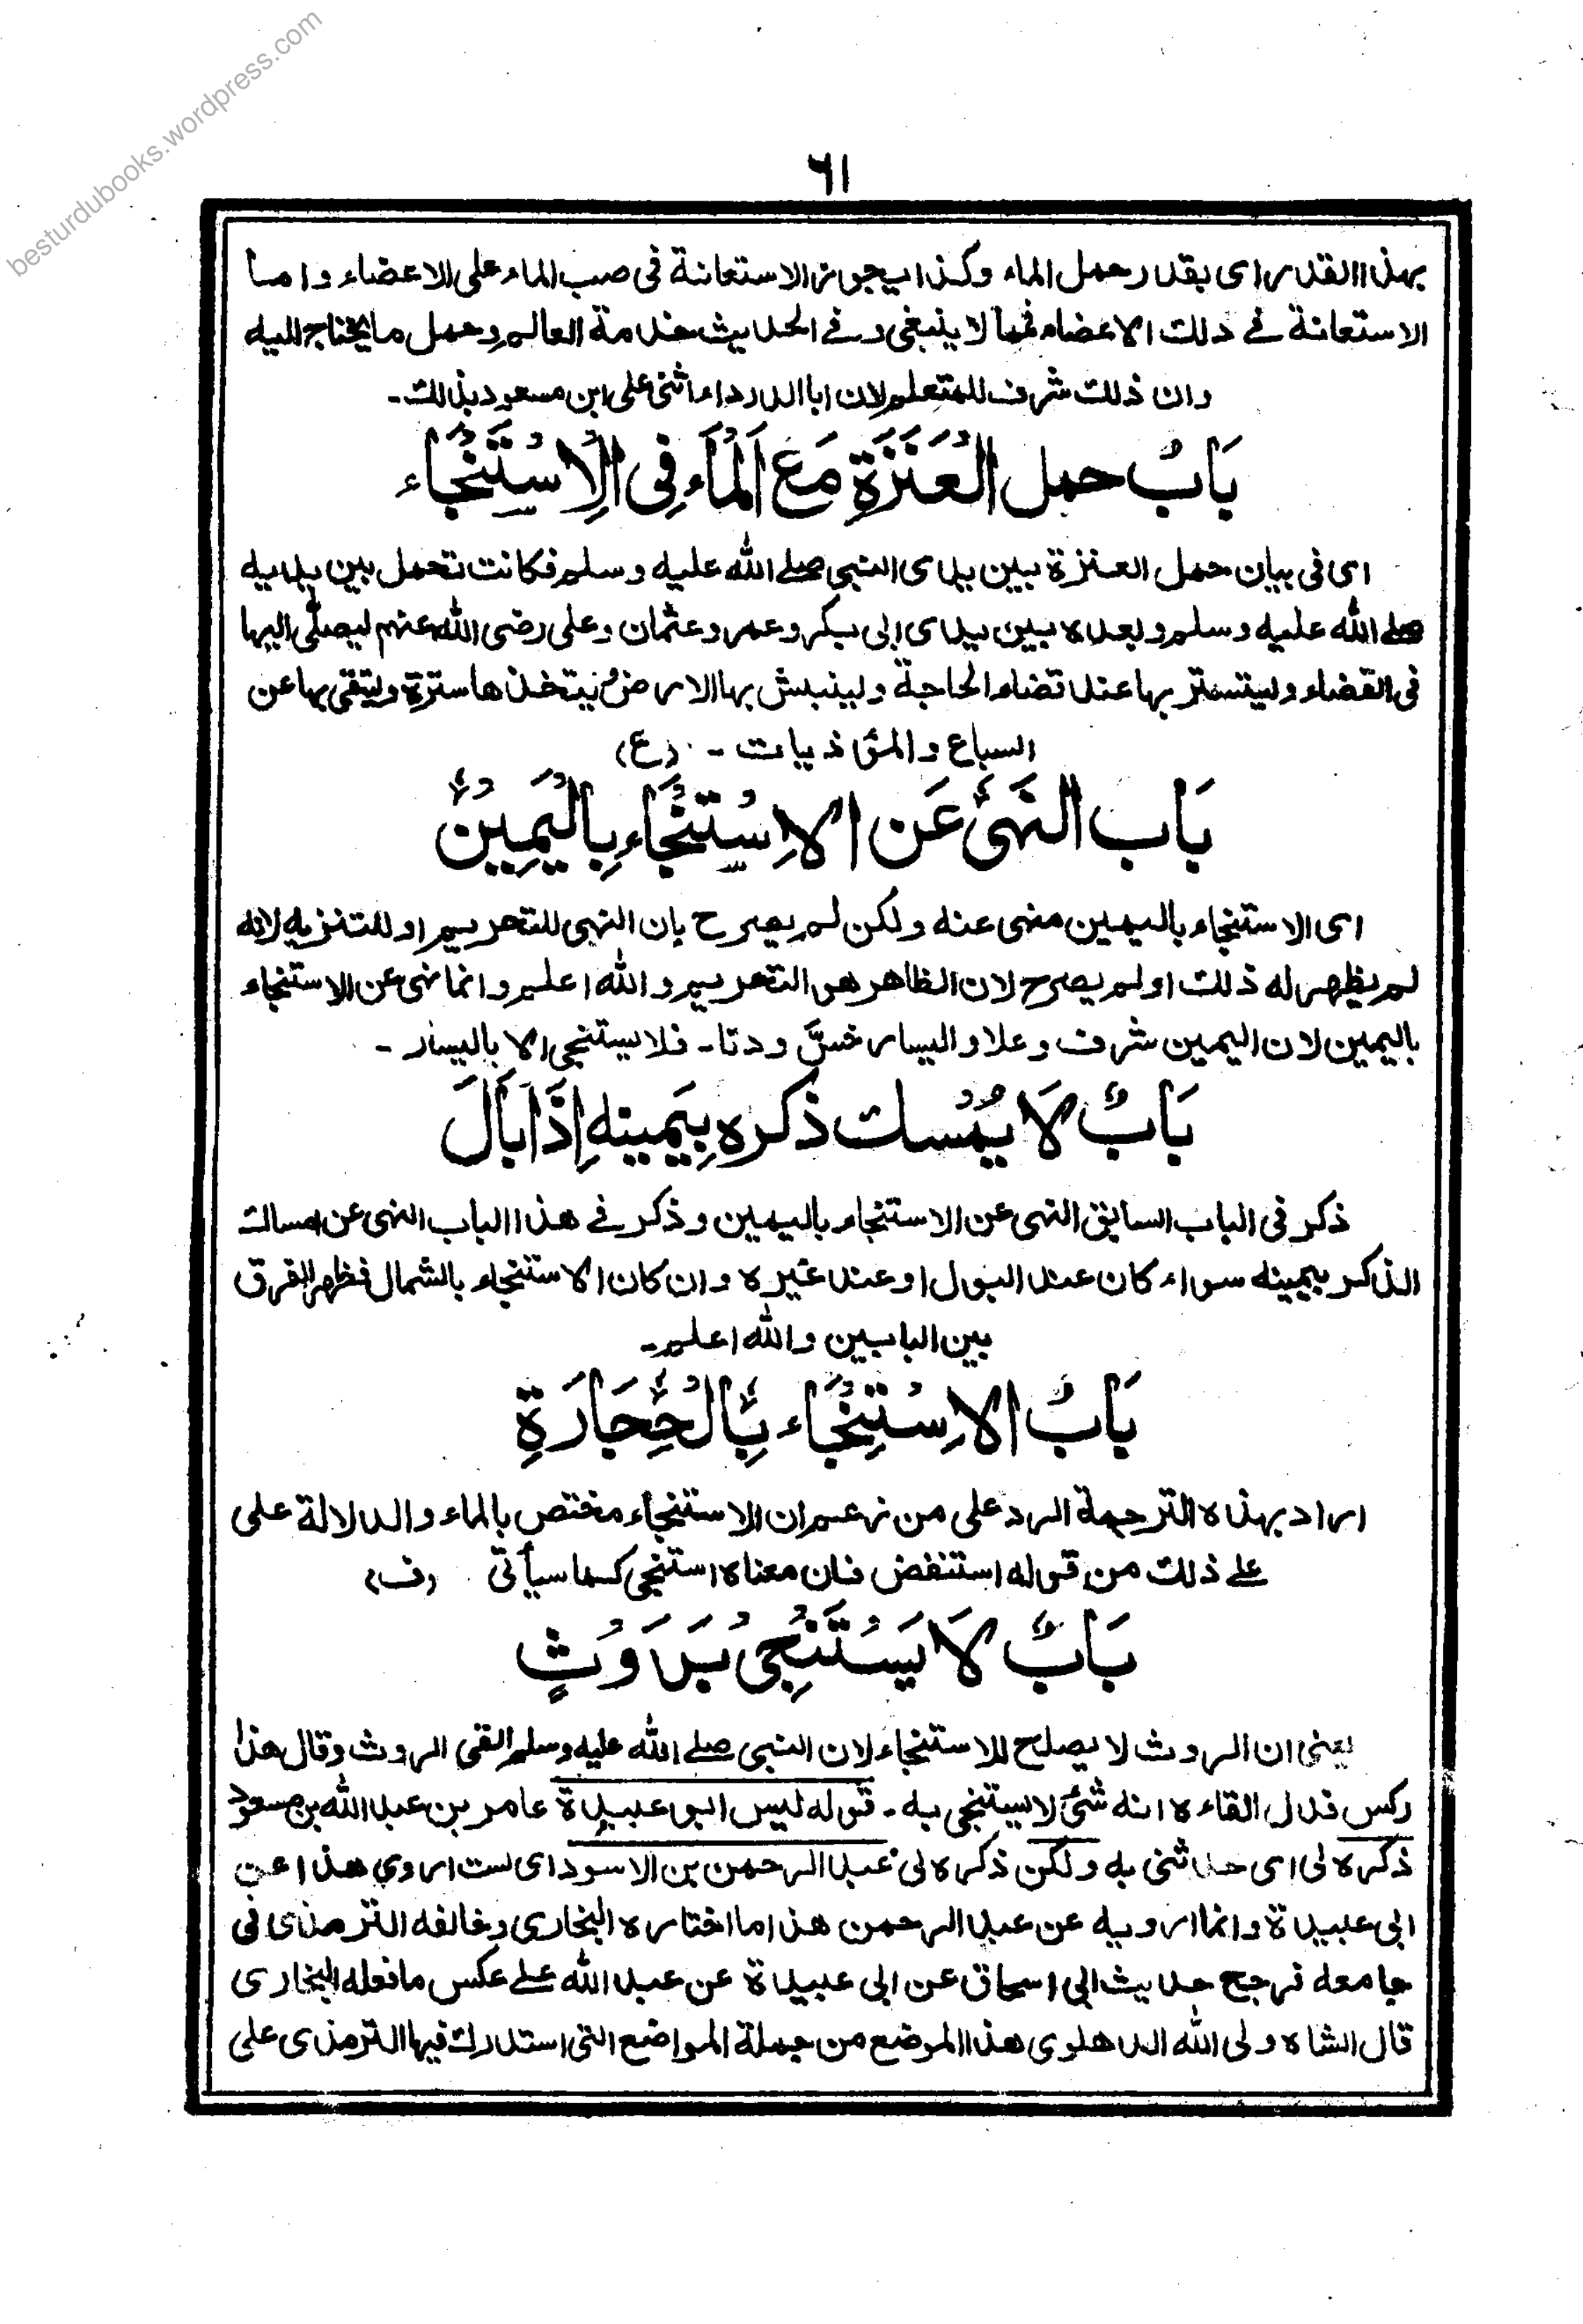 besturdubooks.wordpress.com
٦١
بهذا القدر اى بقدر حمل الماء وكذا يجوز الاستعانة فى صب الماء على الاعضاء واما
الاستعانة فے دلك الاعضاء فمما لا ينبغى وفے الحديث خدمة العالم وحمل ما يحتاج اليه
وان ذلك شرف للمتعلم لان ابا الدرداء اثنى على ابن مسعود بذلك۔
بَابُ حمل الْعَنَزَةِ مَعَ الْمَاءِ فِى الْاِسْتِنْجَاء
اى فى بيان حمل العنزة بين يدى النبى صلے الله عليه وسلم فكانت تحمل بين يديه
صلے الله عليه وسلم وبعده بين يدى ابى بكر وعمر وعثمان وعلى رضى الله عنهم ليصلّى اليها
فى القضاء وليستتر بها عند قضاء الحاجة ولينبش بها الارض ويتخذها سترة وليتقى بها عن
السباع والمؤذيات ۔ (ع)
بَاب النَهْىِ عَن الاِسْتِنْجَاءِ بِالْيَمِيْنِ
اى الاستنجاء باليمين منهى عنه ولكن لم يصرح بان النهى للتحريم او للتنزيه لانه
لم يظهر له ذلك او لم يصرح لان الظاهر هو التحريم والله اعلم وانما نهى عن الاستنجاء
باليمين لان اليمين شرف وعلا واليسار خسَّ ودنا۔ فلا يستنجى الا باليسار ۔
بَابٌ لَا يُمْسك ذكره بِيَمِينهِ اِذَا بَالَ
ذكر فى الباب السابق النهى عن الاستنجاء باليمين وذكر فے هذا الباب النهى عن امساك
الذكر بيمينه سواء كان عند البول او عند غيره وان كان الاستنجاء بالشمال فظهر الفرق
بين البابين والله اعلم۔
بَابُ الاِسْتِنْجَاء بِالْحِجَارَةِ
اراد بهذه الترجمة الرد على من زعم ان الاستنجاء مختص بالماء والدلالة على
علے ذلك من قوله استنفض فان معناه استنجى كما سيأتى (ف)
بَابٌ لَا يَسْتَنْجِىْ بِرَوْثٍ
يعنى ان الروث لا يصلح للاستنجاء لان النبى صلے الله عليه وسلم القى الروث وقال هذا
ركس فدل القاءه انه شئ لا يستنجى به ۔ قوله ليس ابو عبيدة عامر بن عبد الله بن مسعود
ذكره لى اى حدثنى به ولكن ذكره لى عبد الرحمن بن الاسود اى لست اروى هذا عن
ابى عبيدة وانما ارويه عن عبد الرحمن هذا ما اختاره البخارى وخالفه الترمذى فى
جامعه فرجح حديث ابى اسحاق عن ابى عبيدة عن عبد الله علے عكس ما فعله البخارى
قال الشاه ولى الله الدهلوى هذا الموضع من جملة المواضع التى استدرك فيها الترمذى على